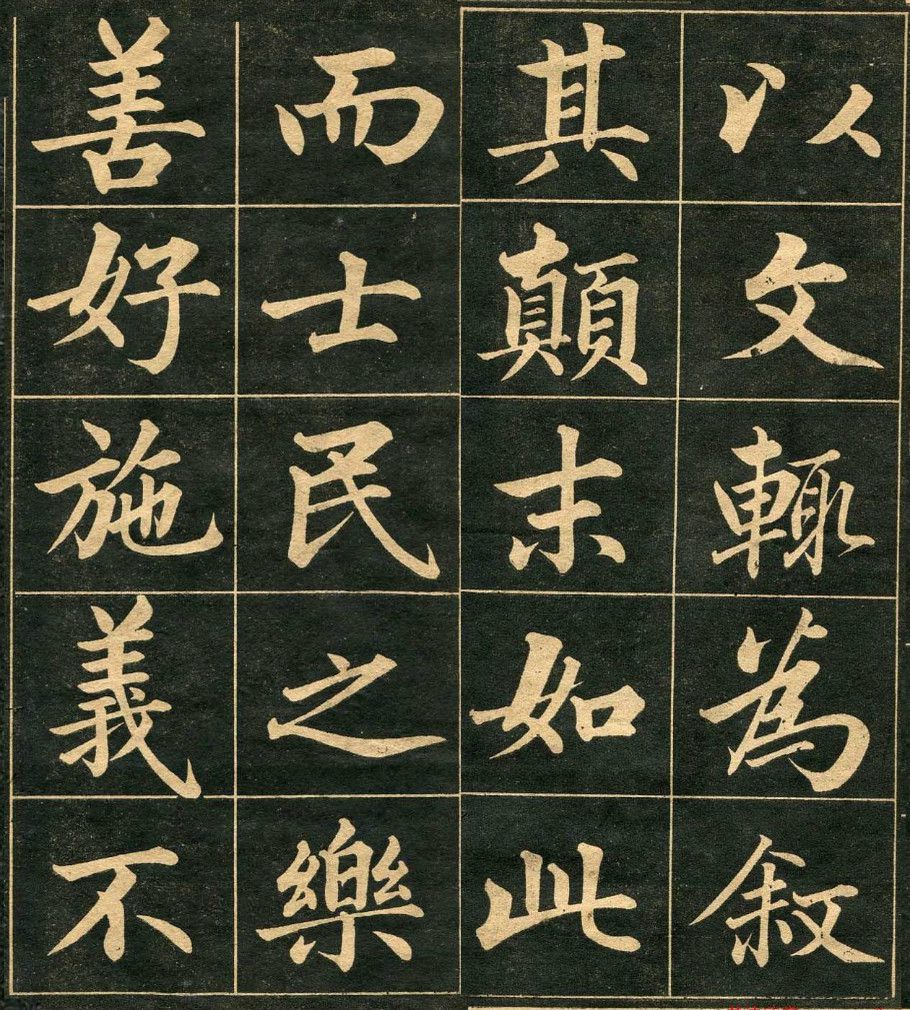 以文輙為叙
其顛末如此
而士民之樂
善好施義不